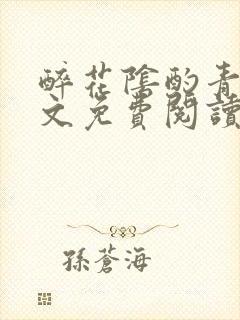 醉花陰酌青
文免費閱讀
孫蒼海